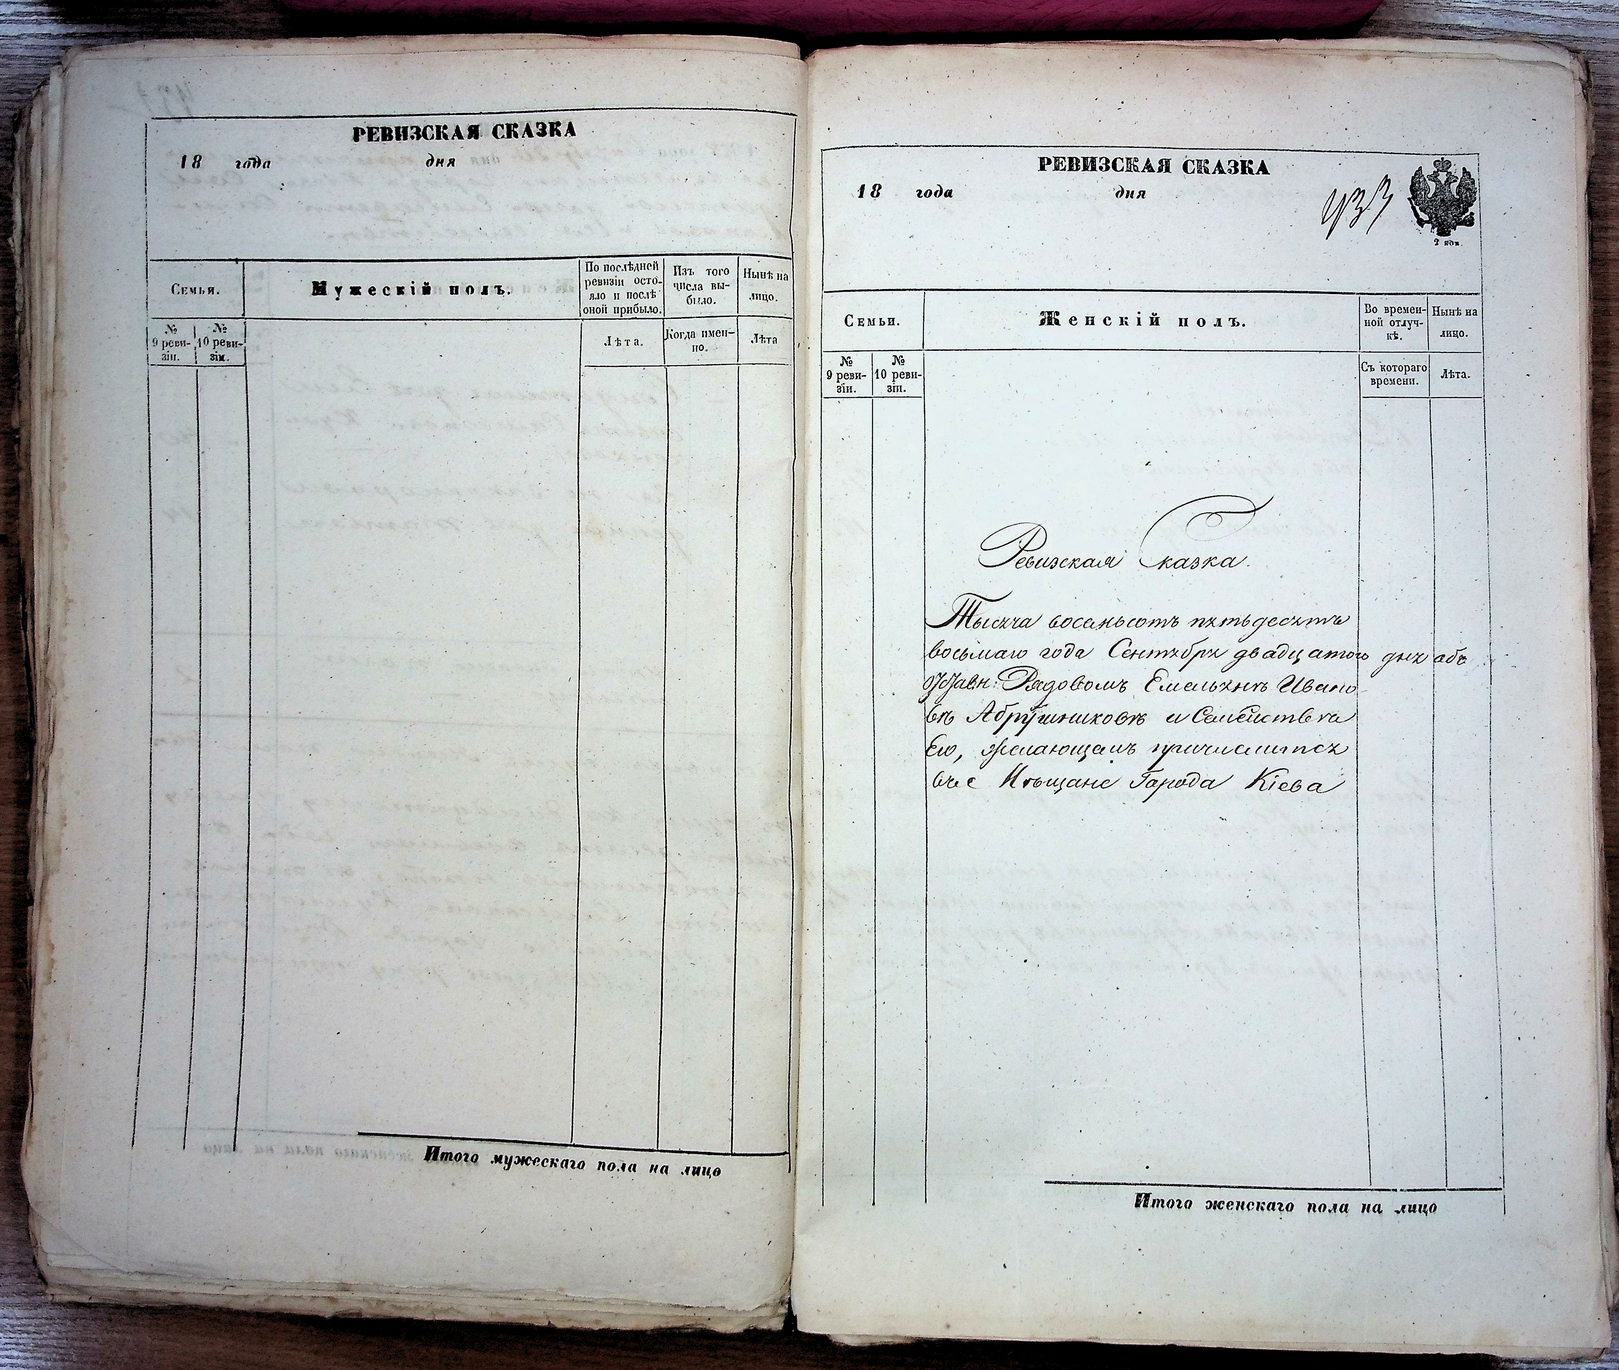 РЕВИЗСКАЯ СКАЗКА
18 года дня
Семьи.
Мужескій полъ.
По послѣдней ревизіи состояло и послѣ оной прибыло.
Изъ того числа выбыло.
Нынѣ на лицо.
№ 9 ревизіи.
№ 10 ревизіи.
Лѣта.
Когда именно.
Лѣта
Итого мужескаго пола на лицо
РЕВИЗСКАЯ СКАЗКА
18 года дня
433
2 коп.
Семьи.
Женскій полъ.
Во временной отлучкѣ.
Нынѣ на лицо.
№ 9 ревизіи.
№ 10 ревизіи.
Съ котораго времени.
Лѣта.
Ревизская Сказка.
Тысяча восемьсотъ пятьдесятъ
восьмаго года Сентября двадцатого дня объ
Рядовомъ Емельянѣ Ивано
вѣ Абрушниковѣ и Семействѣ
Его, желающемъ причислится
въ Мѣщане Города Кіева
Итого женскаго пола на лицо